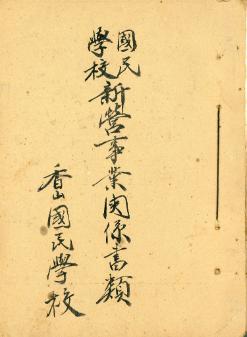 國民
學校
新營事業関係書類
香山國民學校